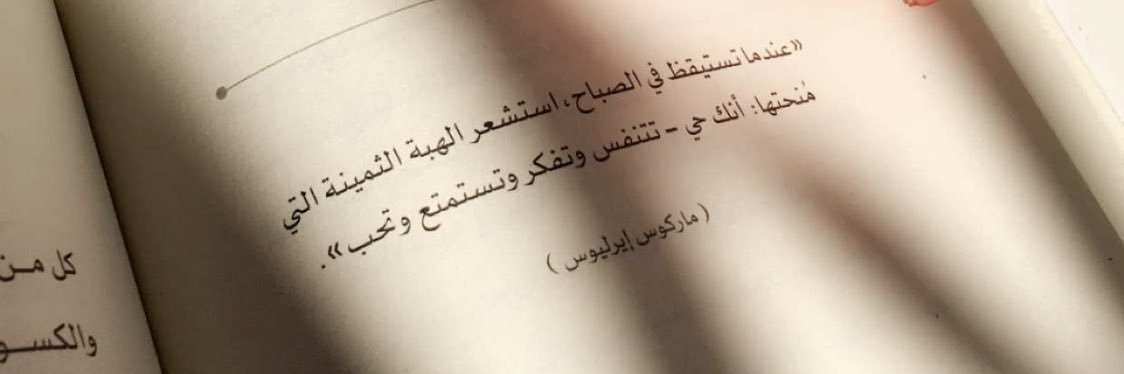 «عندما تستيقظ في الصباح، استشعر الهبة الثمينة التي
مُنحتها: أنك حي - تتنفس وتفكر وتستمتع وتحب».
(ماركوس إيرليوس)
كل من
والكسو